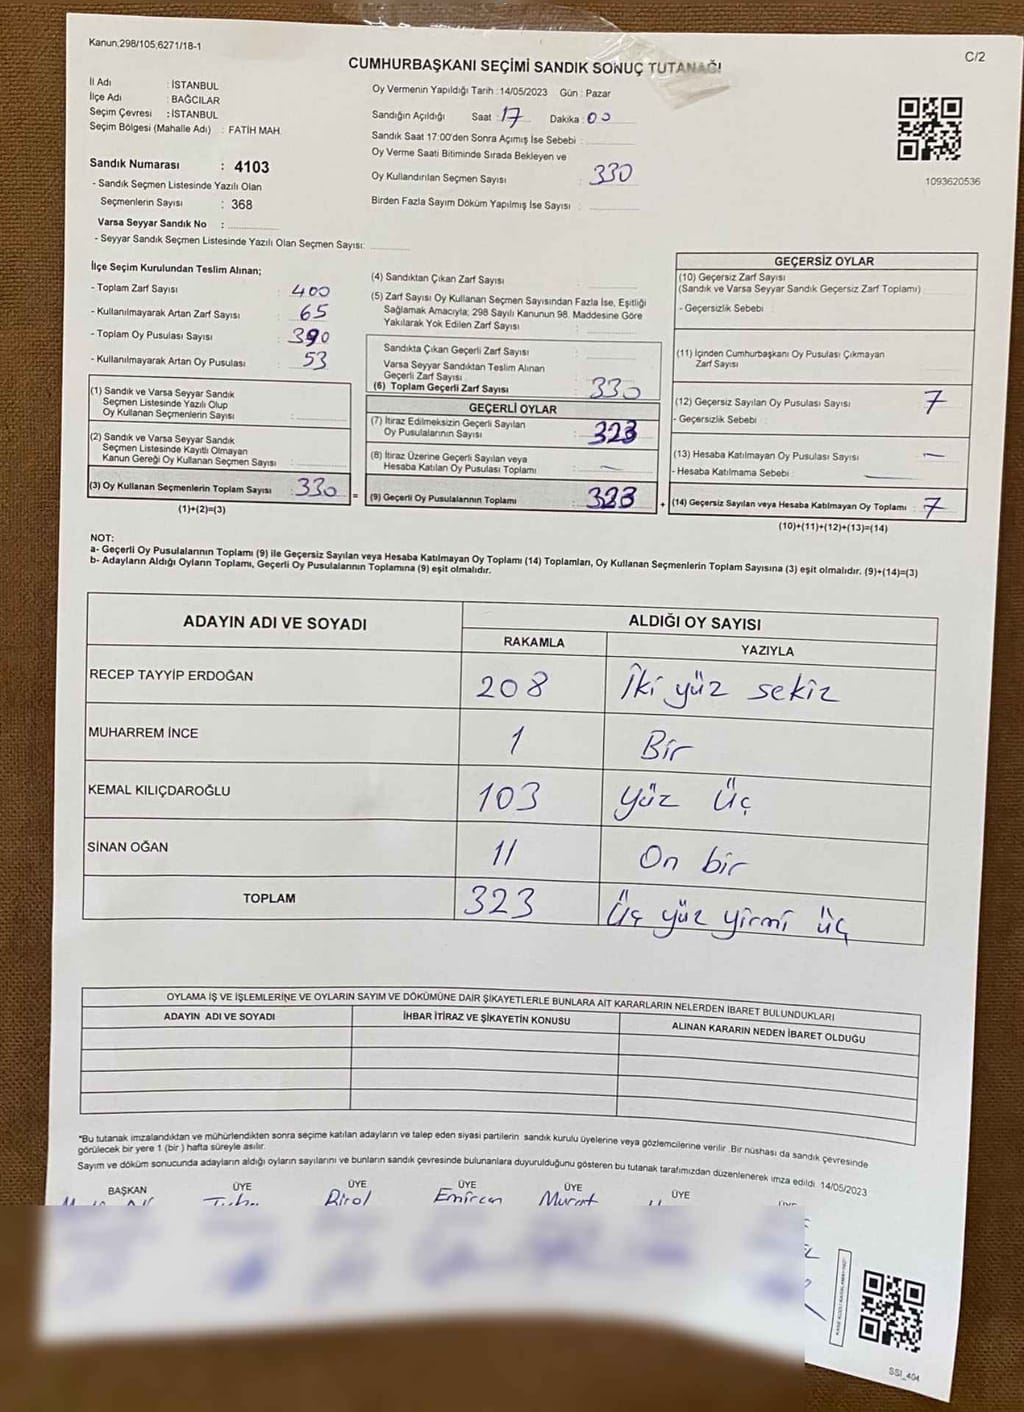 Kanun,298/105,6271/18-1
C/2
CUMHURBAŞKANI SEÇİMİ SANDIK SONUÇ TUTANAĞI
İl Adı : İSTANBUL
İlçe Adı : BAĞCILAR
Seçim Çevresi : İSTANBUL
Seçim Bölgesi (Mahalle Adı) : FATİH MAH.
Sandık Numarası : 4103
- Sandık Seçmen Listesinde Yazılı Olan
Seçmenlerin Sayısı : 368
Varsa Seyyar Sandık No :
- Seyyar Sandık Seçmen Listesinde Yazılı Olan Seçmen Sayısı:
Oy Vermenin Yapıldığı Tarih :14/05/2023 Gün : Pazar
Sandığın Açıldığı Saat : 17 Dakika : 00
Sandık Saat 17:00'den Sonra Açımış İse Sebebi :
Oy Verme Saati Bitiminde Sırada Bekleyen ve
Oy Kullandırılan Seçmen Sayısı : 330
Birden Fazla Sayım Döküm Yapılmış İse Sayısı :
1093620536
İlçe Seçim Kurulundan Teslim Alınan;
- Toplam Zarf Sayısı : 400
- Kullanılmayarak Artan Zarf Sayısı : 65
- Toplam Oy Pusulası Sayısı : 390
- Kullanılmayarak Artan Oy Pusulası : 53
(1) Sandık ve Varsa Seyyar Sandık
Seçmen Listesinde Yazılı Olup
Oy Kullanan Seçmenlerin Sayısı :
(2) Sandık ve Varsa Seyyar Sandık
Seçmen Listesinde Kayıtlı Olmayan
Kanun Gereği Oy Kullanan Seçmen Sayısı :
(3) Oy Kullanan Seçmenlerin Toplam Sayısı : 330
(1)+(2)=(3)
=
(4) Sandıktan Çıkan Zarf Sayısı :
(5) Zarf Sayısı Oy Kullanan Seçmen Sayısından Fazla İse, Eşitliği
Sağlamak Amacıyla; 298 Sayılı Kanunun 98. Maddesine Göre
Yakılarak Yok Edilen Zarf Sayısı :
Sandıkta Çıkan Geçerli Zarf Sayısı :
Varsa Seyyar Sandıktan Teslim Alınan
Geçerli Zarf Sayısı :
(6) Toplam Geçerli Zarf Sayısı : 330
GEÇERLİ OYLAR
(7) İtiraz Edilmeksizin Geçerli Sayılan
Oy Pusulalarının Sayısı : 323
(8) İtiraz Üzerine Geçerli Sayılan veya
Hesaba Katılan Oy Pusulası Toplamı : —
(9) Geçerli Oy Pusulalarının Toplamı : 323
+
GEÇERSİZ OYLAR
(10) Geçersiz Zarf Sayısı
(Sandık ve Varsa Seyyar Sandık Geçersiz Zarf Toplamı) :
- Geçersizlik Sebebi :
(11) İçinden Cumhurbaşkanı Oy Pusulası Çıkmayan
Zarf Sayısı :
(12) Geçersiz Sayılan Oy Pusulası Sayısı : 7
- Geçersizlik Sebebi :
(13) Hesaba Katılmayan Oy Pusulası Sayısı : —
- Hesaba Katılmama Sebebi : —
(14) Geçersiz Sayılan veya Hesaba Katılmayan Oy Toplamı : 7
(10)+(11)+(12)+(13)=(14)
NOT:
a- Geçerli Oy Pusulalarının Toplamı (9) ile Geçersiz Sayılan veya Hesaba Katılmayan Oy Toplamı (14) Toplamları, Oy Kullanan Seçmenlerin Toplam Sayısına (3) eşit olmalıdır. (9)+(14)=(3)
b- Adayların Aldığı Oyların Toplamı, Geçerli Oy Pusulalarının Toplamına (9) eşit olmalıdır.
ADAYIN ADI VE SOYADI
ALDIĞI OY SAYISI
RAKAMLA YAZIYLA
RECEP TAYYİP ERDOĞAN 208 İki yüz sekiz
MUHARREM İNCE 1 Bir
KEMAL KILIÇDAROĞLU 103 Yüz Üç
SİNAN OĞAN 11 On bir
TOPLAM 323 Üç yüz yirmi üç
OYLAMA İŞ VE İŞLEMLERİNE VE OYLARIN SAYIM VE DÖKÜMÜNE DAİR ŞİKAYETLERLE BUNLARA AİT KARARLARIN NELERDEN İBARET BULUNDUKLARI
ADAYIN ADI VE SOYADI İHBAR İTİRAZ VE ŞİKAYETİN KONUSU ALINAN KARARIN NEDEN İBARET OLDUĞU
"Bu tutanak imzalandıktan ve mühürlendikten sonra seçime katılan adayların ve talep eden siyasi partilerin sandık kurulu üyelerine veya gözlemcilerine verilir. Bir nüshası da sandık çevresinde
görülecek bir yere 1 (bir ) hafta süreyle asılır.
Sayım ve döküm sonucunda adayların aldığı oyların sayılarını ve bunların sandık çevresinde bulunanlara duyurulduğunu gösteren bu tutanak tarafımızdan düzenlenerek imza edildi. 14/05/2023
BAŞKAN ÜYE ÜYE ÜYE ÜYE ÜYE
Birol Emircan Murat
SSI_404